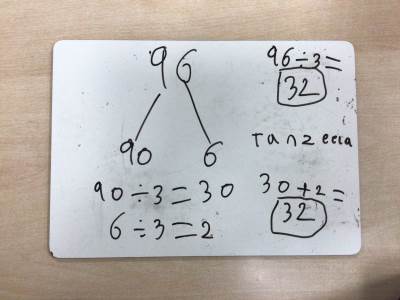 96
90 6
90÷3=30
6÷3=2
96÷3=
32
Tanzeela
30+2=
32